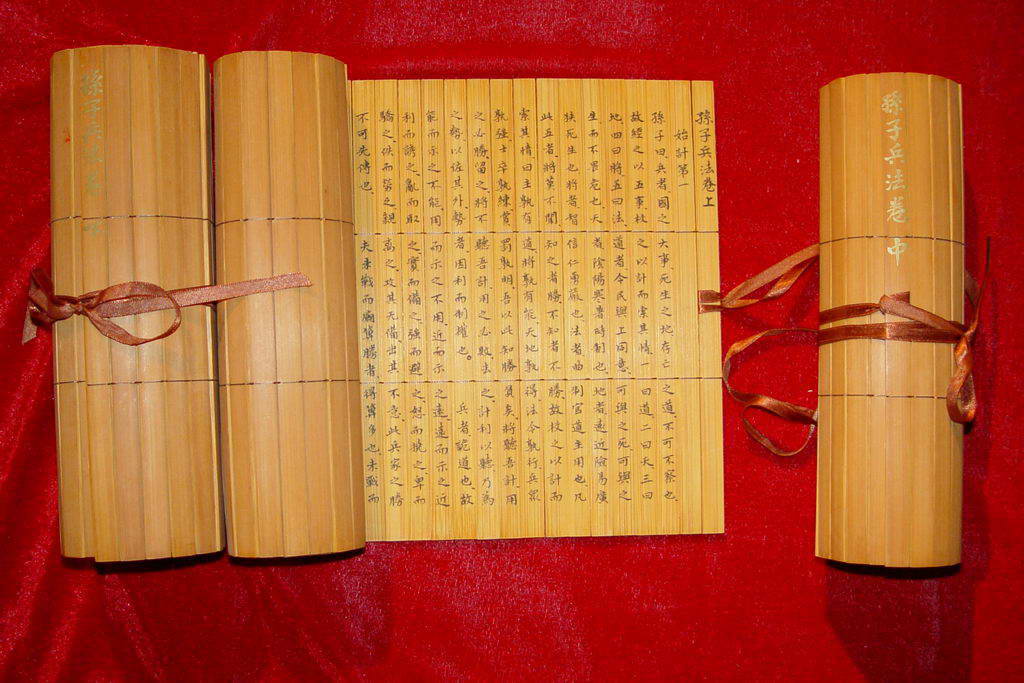 孫子兵法卷上
始計第一
孫子曰、兵者、國之大事、死生之地、存亡之道、不可不察也、
故經之以五事、校之以計而索其情、一曰道、二曰天、三曰
地四曰將、五曰法、道者、令民與上同意、可與之死、可與之
生而不畏危也、天者、陰陽寒暑時制也、地者、遠近險易廣
狹死生也、將者、智信仁勇嚴也、法者、曲制官道主用也、凡
此五者、將莫不聞、知之者勝、不知者不勝、故校之以計而
索其情、曰主孰有道、將孰有能、天地孰得、法令孰行、兵眾
孰強、士卒孰練、賞罰孰明、吾以此知勝負矣、將聽吾計用
之必勝、留之、將不聽吾計用之必敗、去之、計利以聽、乃為
之勢、以佐其外、勢者因利而制權也。兵者、詭道也、故
能而示之不能、用而示之不用、近而示之遠、遠而示之近
利而誘之、亂而取之、實而備之、強而避之、怒而撓之、卑而
驕之、佚而勞之、親離之、攻其無備、出其不意、此兵家之勝
不可先傳也、夫未戰而廟算勝者、得算多也、未戰而
孫子兵法卷中
孫子兵法卷